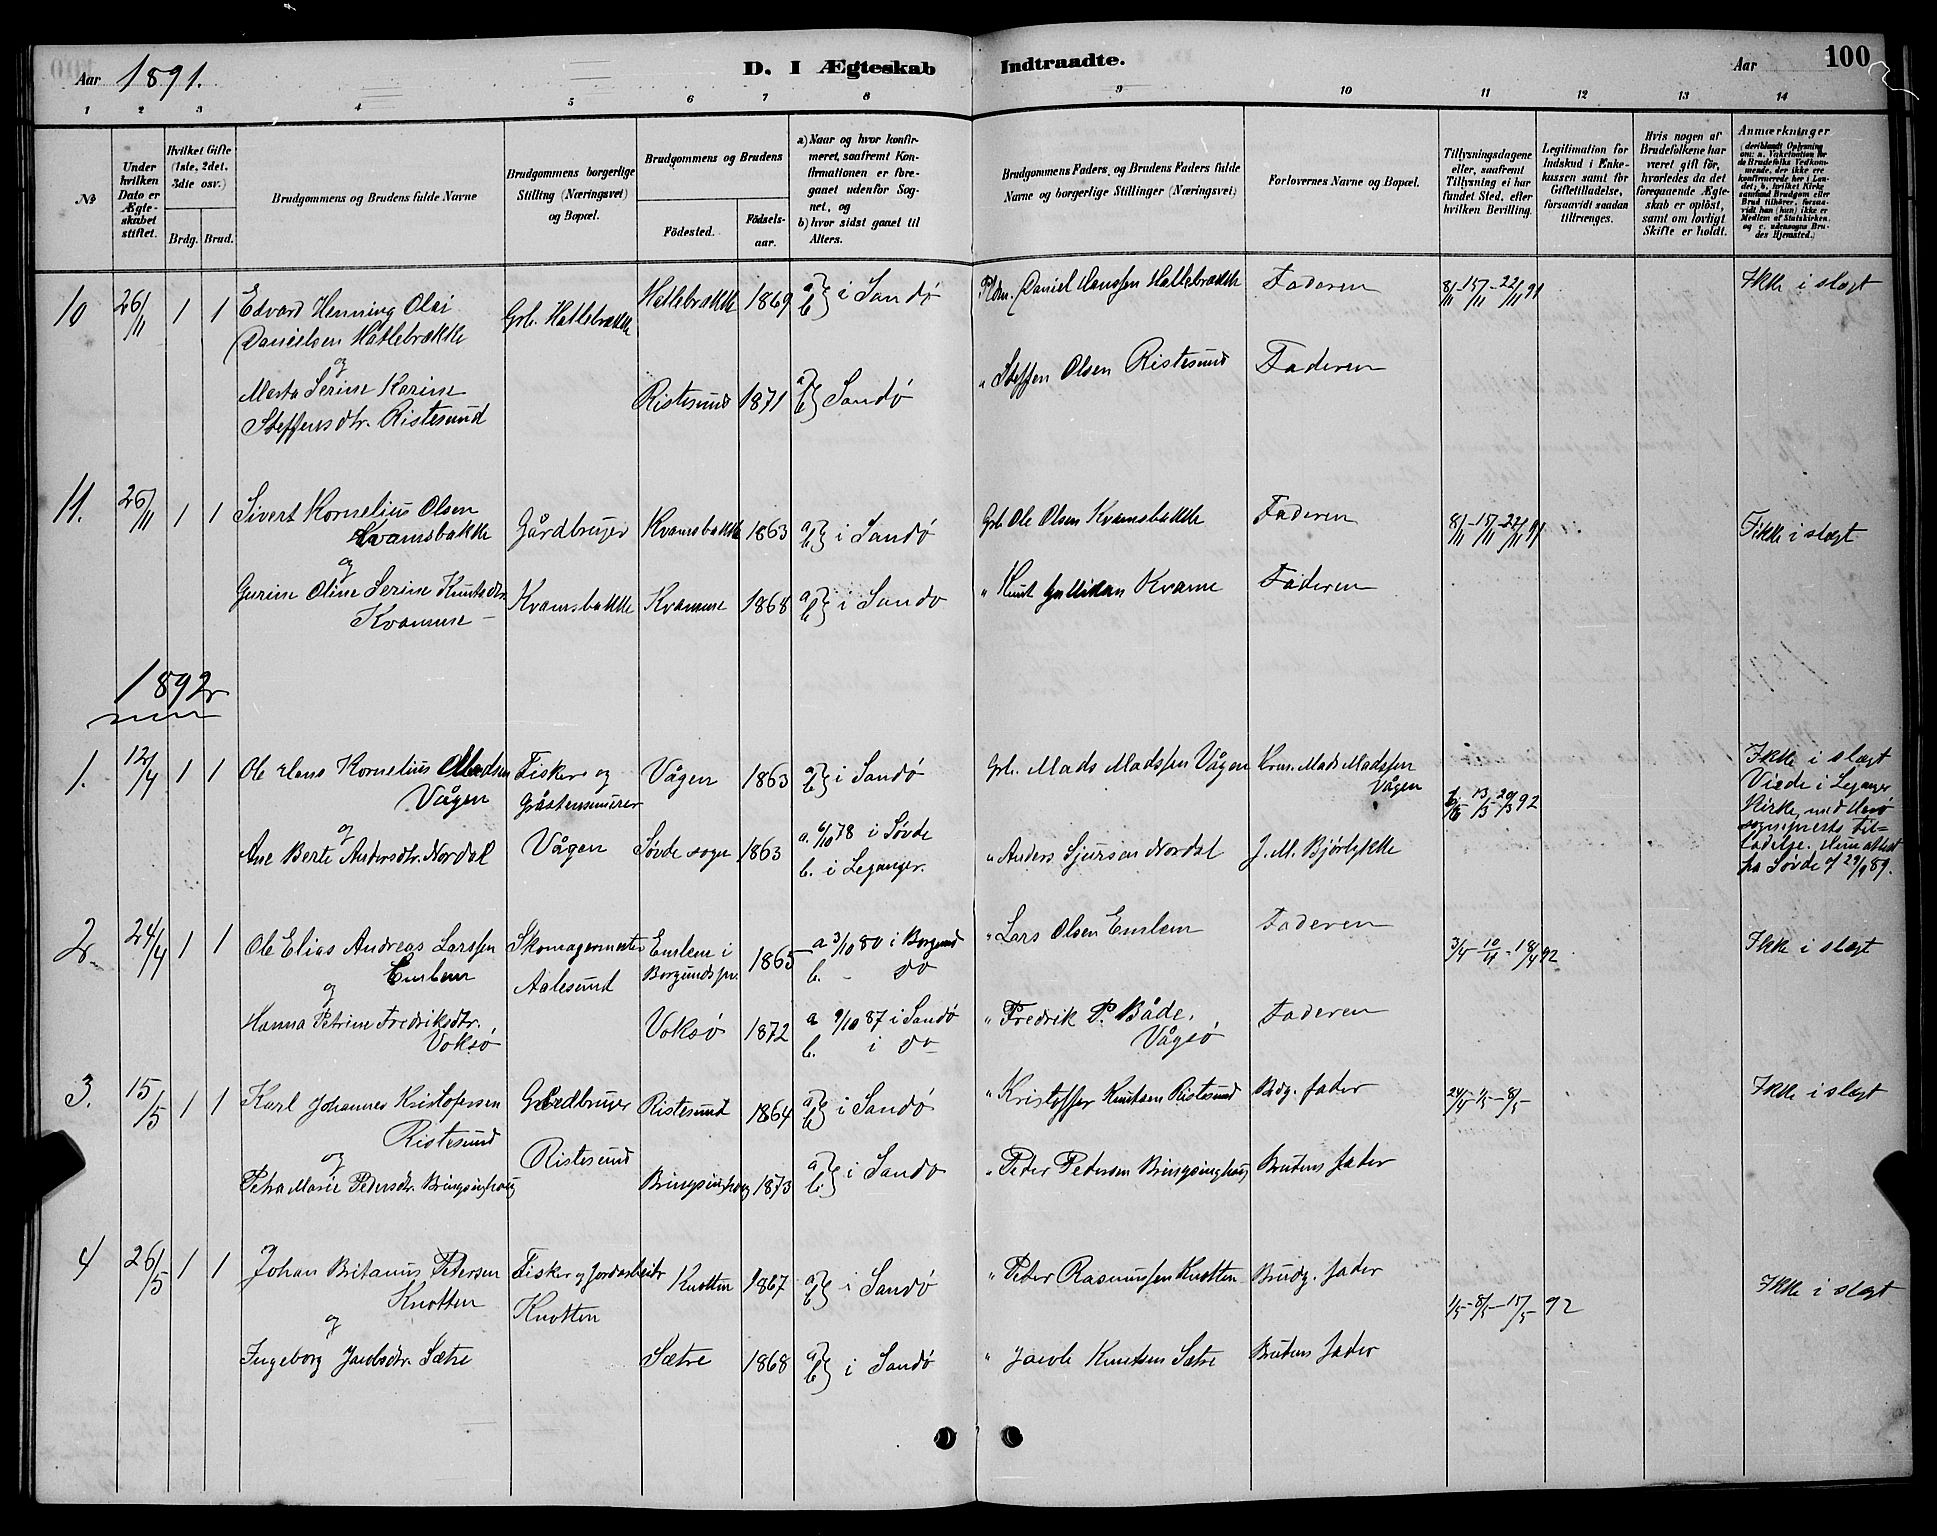 Aar 1891.
D. I Ægteskab Indtraadte.
Aar 100
1 2 3 4 5 6 7 8 9 10 11 12 13 14
№
Under hvilken Dato er Ægteskabet stiftet.
Hvilket Gifte (1ste, 2det, 3die osv.)
Brdg. Brud.
Brudgommens og Brudens fulde Navne
Brudgommens borgerlige Stilling (Næringsvei) og Bopæl.
Brudgommens og Brudens
Födested.
Födselsaar.
a) Naar og hvor konfirmeret, saafremt Konfirmationen er foregaaet udenfor Sognet, og
b) hvor sidst gaaet til Alters.
Brudgommens Faders, og Brudens Faders fulde Navne og borgerlige Stillinger (Næringsvei)
Forlovernes Navne og Bopæl.
Tillysningsdagene eller, saafremt Tillysning ei har fundet Sted, efter hvilken Bevilling.
Legitimation for Indskud i Enkekassen samt for Giftetilladelse, forsaavidt saadan tiltrænges.
Hvis nogen af Brudefolkene har været gift för, hvorledes da det foregaaende Ægteskab er oplöst, samt om lovligt Skifte er holdt.
Anmærkninger
10 26/11 1 1 Edvard Henning Olai Grb. Hatlebrække Hatlebrække 1869 a) b) i Sandø
Danielsen Hatlebrække
og
Marta Serine Karine
Steffensdtr. Ristesund Ristesund 1871 a) b) Sandø
Daniel Hanssen Hatlebrække Faderen 8/11-15/11-22/11 91 Ikke i slægt
" Steffen Olsen Ristesund Faderen
11. 26/11 1 1 Sivert Kornelius Olsen
Kvamsbakke Gårdbruger Kvamsbakke 1863 a) b) i Sandø
og
Gurine Oline Serine Knutsdtr.
Kvamme Kvamsbakke Kvamme 1868 a) b) i Sandø
Grb. Ole Olsen Kvamsbakke Faderen 8/11-15/11-22/11 91 Ikke i slægt
" Knut Kvame Faderen
1892
1. 12/4 1 1 Ole Hans Kornelius Madsen
Vågen Fisker og Gråstensmurer Vågen 1863 a) b) i Sandø
og
Ane Berte Andersdtr. Nordal Vågen Søvde sogn 1863 a. 6/10 78 i Søvde
b. i Leganger.
Grb. Mads Madssen Vågen Mads Madssen
Vågen 13/3 20/3 92
" Anders Sjursen Nordal J. M. Bjørlykke
Ikke i slægt
Viede i Leganger
Kirke, med Herø
sogneprests til-
ladelse. attest
fra Søvde af 29/9 89.
2. 24/4 1 1 Ole Elias Andreas Larssen
Emblem Skomagermester
Aalesund Emblem i
Borgunds pr. 1865 a 3/10 80 i Borgund
b. - do
og
Hanna Petrine Fredriksdtr.
Voksø Voksø 1872 a 9/10 87 i Sandø
b. i do
" Lars Olsen Emblem Faderen 3/4-10/4-18/4 92 Ikke i slægt
" Fredrik P. Både.
Vågsø Faderen
3. 15/5 1 1 Karl Johannes Kristofersen
Ristesund Gårdbruger
Ristesund Ristesund 1864 a) b) i Sandø
og
Petra Marie Pedersdtr. Bringsinghaug Bringsinghaug 1873 a) b) i Sandø
" Kristoffer Knutsen Ristesund Brdg. fader 24/4-1/5-8/5 Ikke i slægt
" Peder Pedersen Bringsinghaug Brudens fader
4 26/5 1 1 Johan Britanus Petersen
Knotten Fisker og Jordarbeidr
Knotten Knotten 1867 a) b) i Sandø
og
Ingeborg Jacobsdtr. Sætre Sætre 1868 a) b) i Sandø
" Peter Rasmussen Knotten Brudg. fader 1/5-8/5-15/5-92 Ikke i slægt
" Jacob Knutsen Sætre Brudens fader